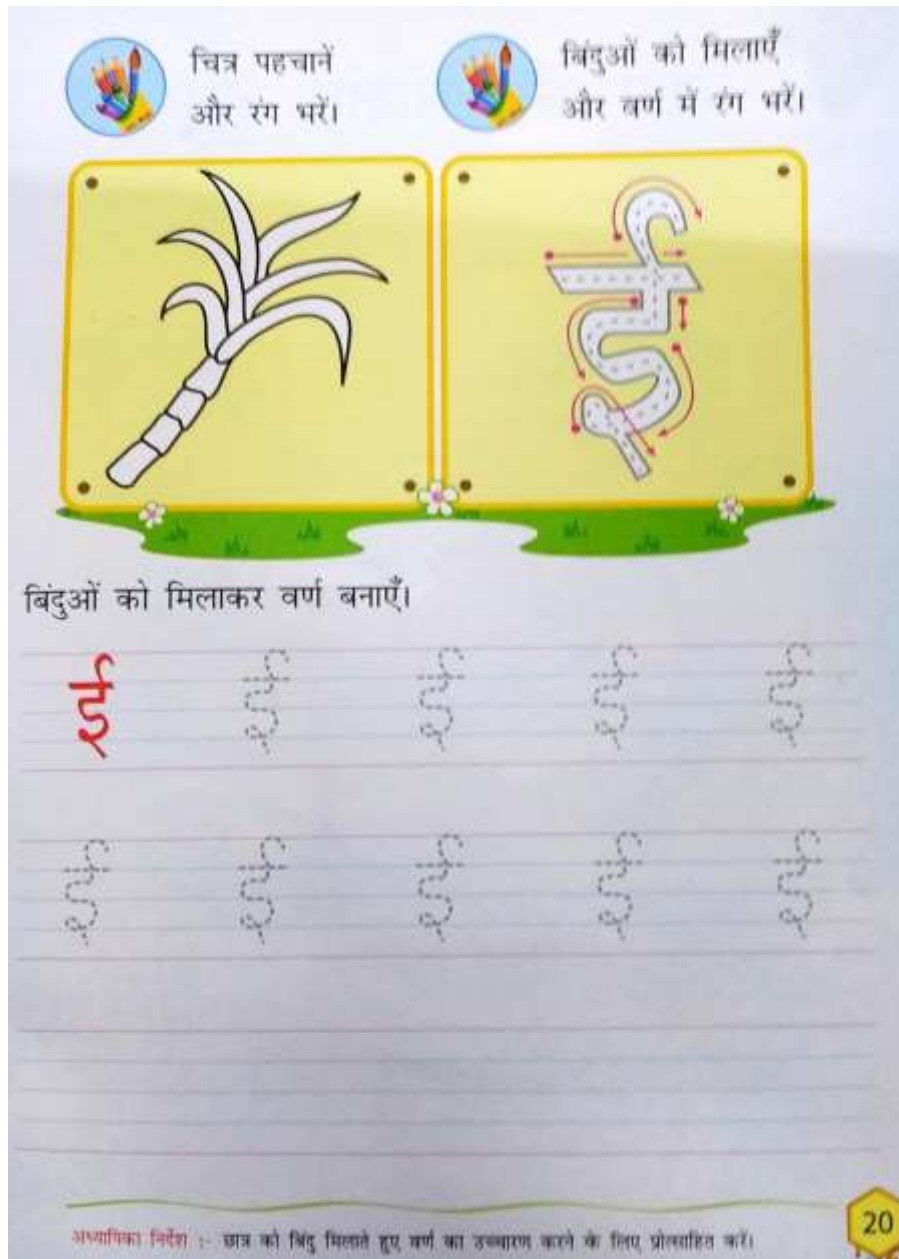 चित्र पहचानें
और रंग भरें।
बिंदुओं को मिलाएँ
और वर्ण में रंग भरें।
ई
बिंदुओं को मिलाकर वर्ण बनाएँ।
ई ई ई ई ई
ई ई ई ई ई
अध्यापिका निर्देश :- छात्र को बिंदु मिलाते हुए वर्ण का उच्चारण करने के लिए प्रोत्साहित करें।
20